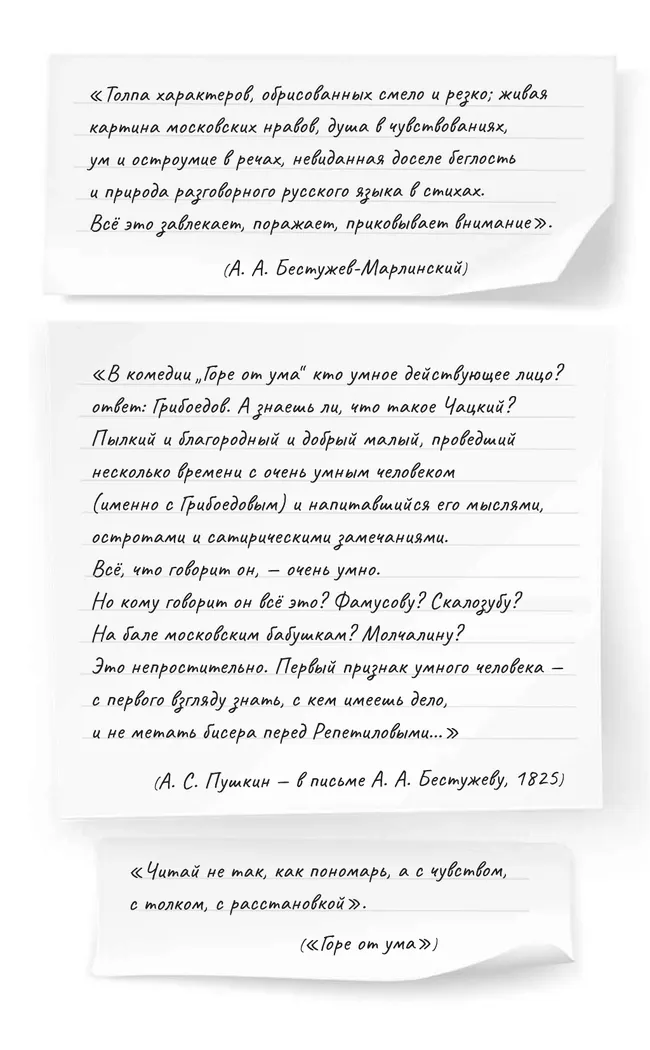 «Толпа характеров, обрисованных смело и резко; живая
картина московских нравов, душа в чувствованиях,
ум и остроумие в речах, невиданная доселе беглость
и природа разговорного русского языка в стихах.
Всё это завлекает, поражает, приковывает внимание».
(А. А. Бестужев-Марлинский)
«В комедии „Горе от ума“ кто умное действующее лицо?
ответ: Грибоедов. А знаешь ли, что такое Чацкий?
Пылкий и благородный и добрый малый, проведший
несколько времени с очень умным человеком
(именно с Грибоедовым) и напитавшийся его мыслями,
остротами и сатирическими замечаниями.
Всё, что говорит он, — очень умно.
Но кому говорит он всё это? Фамусову? Скалозубу?
На бале московским бабушкам? Молчалину?
Это непростительно. Первый признак умного человека —
с первого взгляду знать, с кем имеешь дело,
и не метать бисера перед Репетиловыми...»
(А. С. Пушкин — в письме А. А. Бестужеву, 1825)
«Читай не так, как пономарь, а с чувством,
с толком, с расстановкой».
(«Горе от ума»)